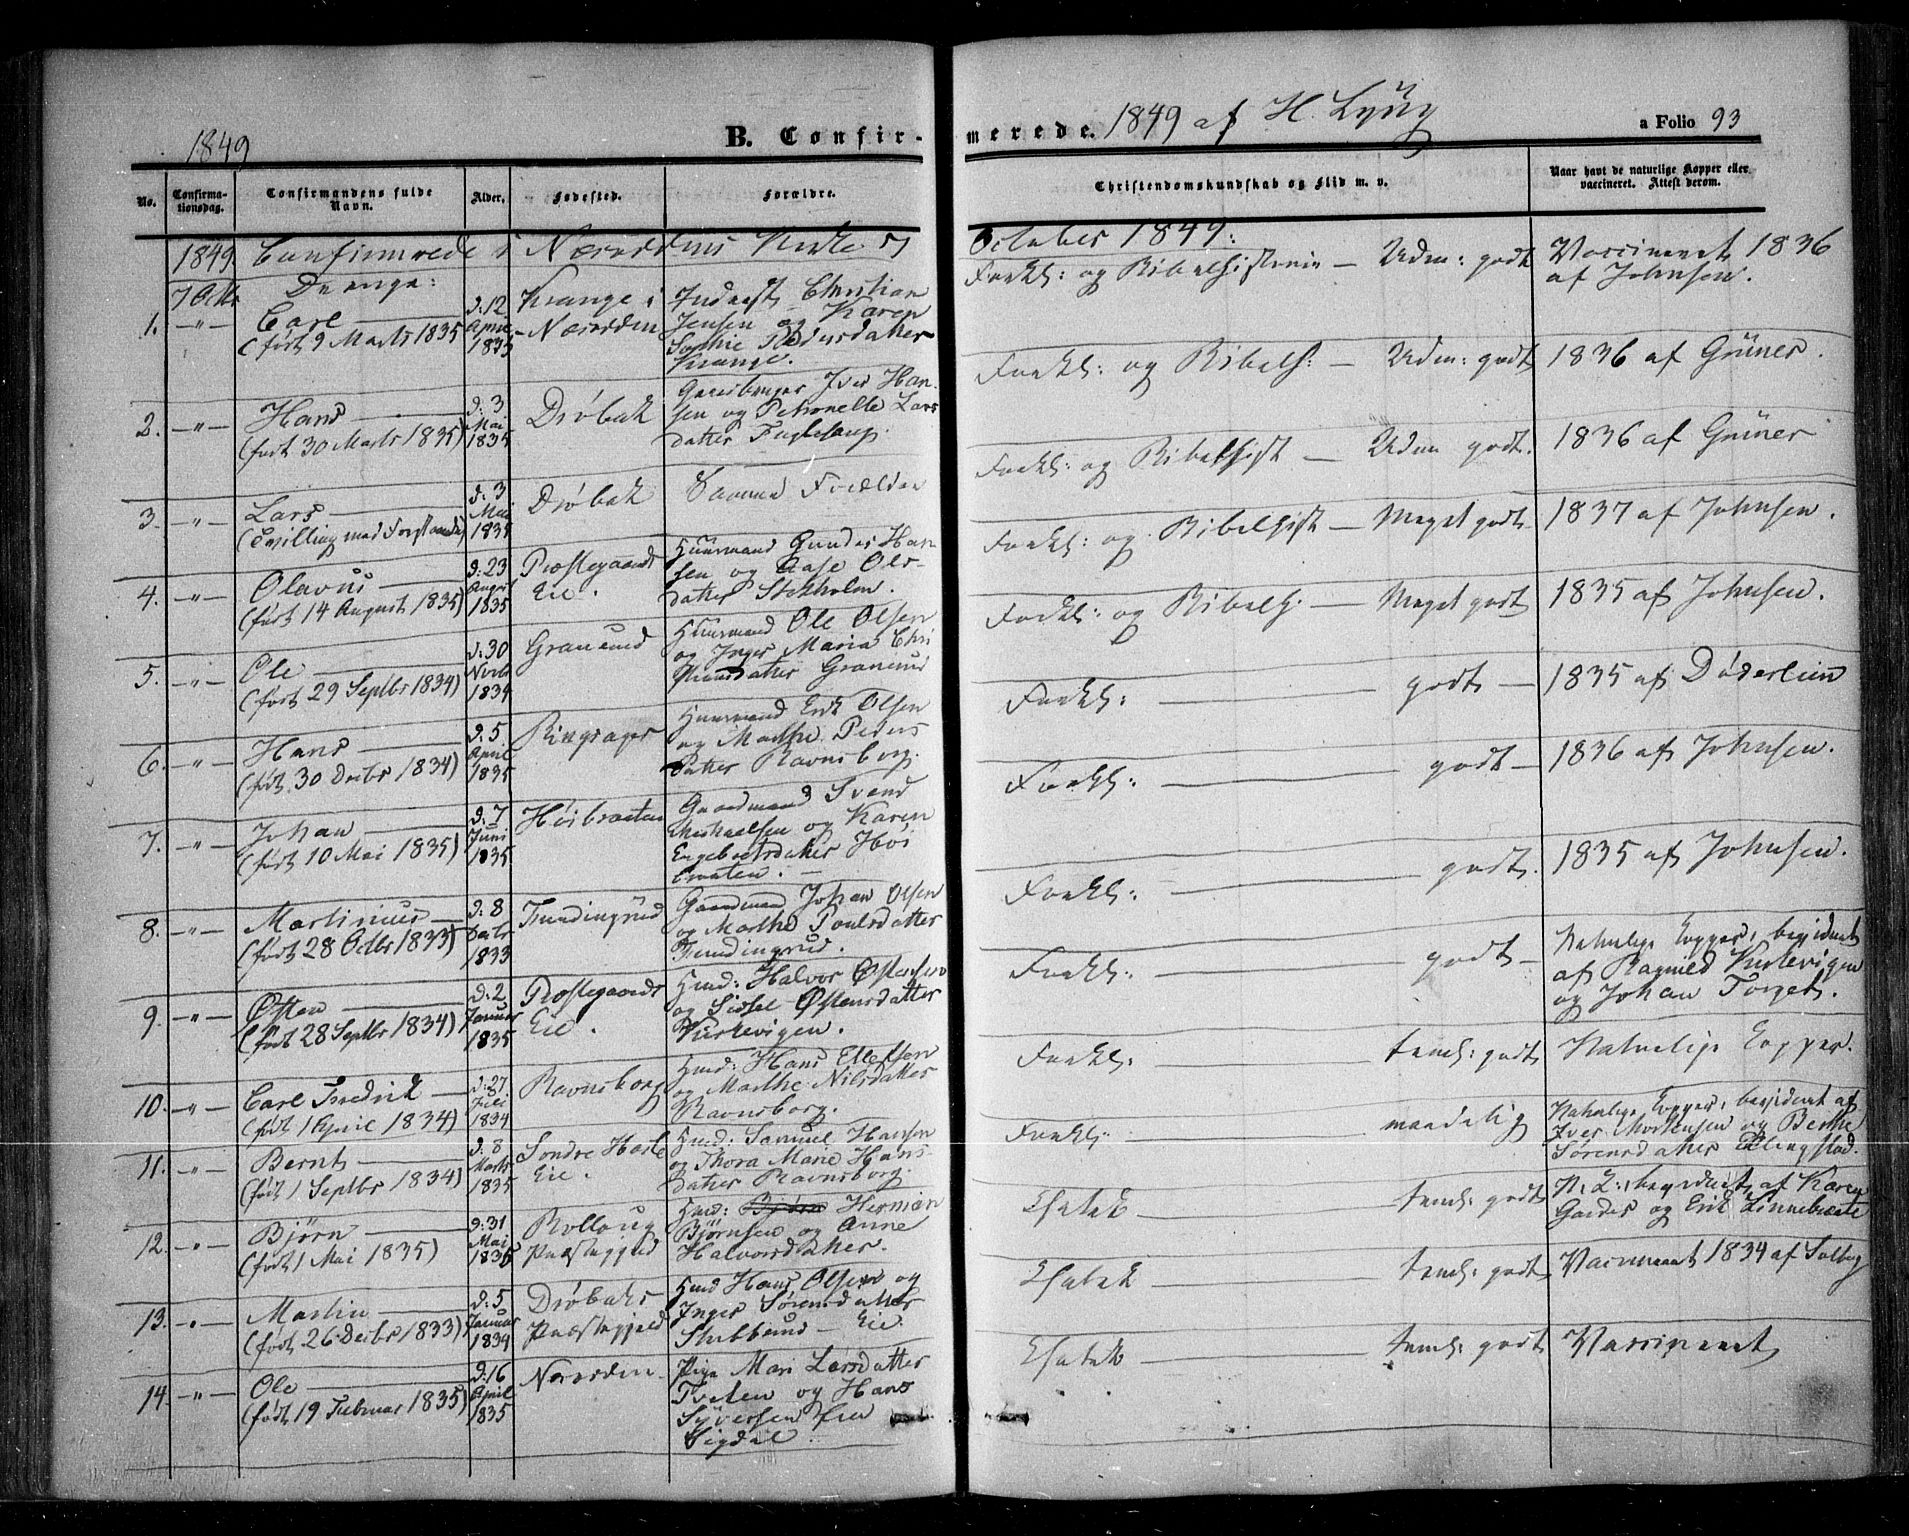 1849
B. Confir-
merede. 1849 af H. Lyng
a Folio 93
No.
Confirma-
tionsdag.
Confirmandens fulde
Navn.
Alder.
Fødested.
Forældre.
Christendomskundskab og Flid m. v.
Naar havt de naturlige Kopper eller
vaccineret. Attest derom.
1849. Confirmerede i Næsoddens Kirke
October 1849:
7 Octbr Drenge:
1. —"— Carl
(født 9 Marts 1835)
d: 12
April
1835
Krange i
Næsodden
Inderst Christian
Jensen og Karen
Sophie Pedersdatter
Krange.
Forkl: og Bibelhistorie — Udm: godt
Vaccineret 1836
af Johnsen.
2. —"— Hans
(født 30 Marts 1835)
d: 3
Mai
1835
Drøbak
Iver Han-
sen og Petronelle Lars
datter
Forkl: og Bibelh: — Udm: godt
1836 af Grüner.
3. —"— Lars
(Tvilling med Forestaaende)
d: 3
Mai
1835
Drøbak
Samme Forældre
Forkl: og Bibelhist — Udm godt.
1836 af Grüner
4. —"— Olavus
(født 14 August 1835)
d: 23
August
1835
Prestegaards
Eie.
Huusmand Gunder Han
sen og Aase Ols-
datter Stokholm.
Forkl: og Bibelhist — Meget godt
1837 af Johnsen.
5. —"— Ole
(født 29 Septbr 1834)
d: 30
Novbr
1834
Granerud
Huusmand Ole Olsen
og Inger Maria Chri
stiansdatter Granerud
Forkl: og Bibelh: — Meget godt
1835 af Johnsen.
6. —"— Hans
(født 30 Decbr 1834)
d: 5
April
1835
Ringsager
Huusmand Erik Olsen
og Marthe Peders
datter Ravnsborg.
Forkl: — godt —
1835 af Døderlein
7. —"— Johan
(født 10 Mai 1835)
d: 7
Juni
1835
Høibraaten
Gaardmand Svend
Michaelsen og Karen
Engebretsdatter Høi
braaten.
Forkl: — godt —
1836 af Johnsen.
8. —"— Martinius
(født 28 Octbr 1833)
d: 8
Decbr
1833
Fundingrud
Gaardmand Johan Olsen
og Marthe Poulsdatter
Fundingrud.
Forkl: — godt.
1835 af Johnsen.
9. —"— Østen
(født 28 Septbr 1834)
d: 2
Januar
1835
Prostegaards
Eie.
Hmd: Halvor Østensen
og Sidsel Østensdatter
Kirkevigen.
Forkl: — godt —
Naturlige Kopper, bevidnet
af Ragnild Kirkevigen
og Johan Torgers.
10. —"— Carl Fredrik
(født 1 April 1834)
d: 27
Juli
1834
Ravnsborg
Hmd: Hans Ellefsen
og Marthe Nilsdatter
Ravnsborg.
Forkl: — teml: godt
Naturlige Kopper.
11. —"— Bernt
(født 1 Septbr 1834)
d: 8
Marts
1835
Søndre
Eie.
Hmd: Samuel Hansen
og Thora Marie Hans
datter Ravnsborg.
Forkl: — maadelig
Naturlige Kopper, bevidnet af
Iver Mortensen og Berthe
Sørensdatter Ellingstad.
12. —"— Bjørn
(født 1 Mai 1835)
d: 31
Mai
1835
Rollaug
Præstegjeld
Hmd: Bjørn Herman
Bjørnsen og Anne
Halvorsdatter.
— teml: godt
N. L: bevidnet af Karen
og Erik Linnebraate
13. —"— Martin
(født 26 Decbr 1833)
d: 5
Januar
1834
Drøbaks
Præstegjeld
Hmd Hans Olsen og
Inger Sørensdatter
Stubberud Eie.
— teml: godt
Vaccineret 1834 af Solberg
14 —"— Ole
(født 19 Februar 1835)
d: 16
April
1835
Næsodden
Pige Mari Larsdatter
Tveten og Hans
Syversen fra
Sigdal
— teml: godt
Vaccineret